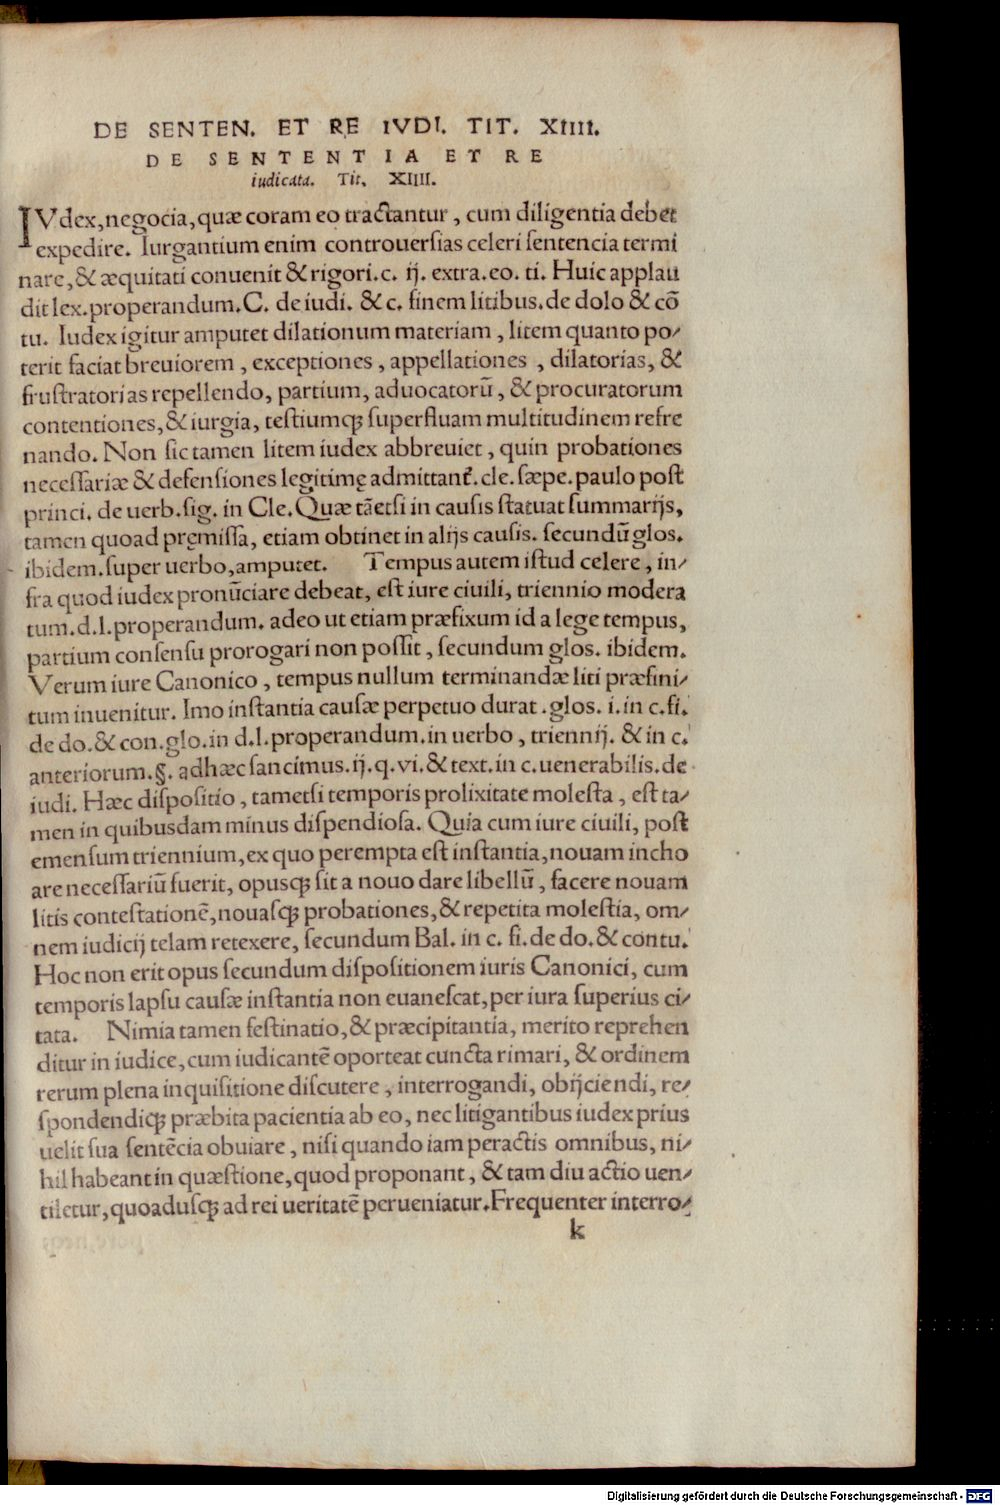 DE SENTEN. ET RE IVDI. TIT. XIIII.
DE SENTENTIA ET RE
iudicata. Tit. XIIII.
IVdex, negocia, quæ coram eo tractantur, cum diligentia debet
expedire. Iurgantium enim controuersias celeri sentencia termi
nare, & æquitati conuenit & rigori. c. ij. extra. eo. ti. Huic applau
dit lex. properandum. C. de iudi. & c. finem litibus. de dolo & cō
tu. Iudex igitur amputet dilationum materiam, litem quanto po-
terit faciat breuiorem, exceptiones, appellationes, dilatorias, &
frustratorias repellendo, partium, aduocatorū, & procuratorum
contentiones, & iurgia, testiumq; superfluam multitudinem refre
nando. Non sic tamen litem iudex abbreuiet, quin probationes
necessariæ & defensiones legitimę admittant̄. cle. sæpe. paulo post
princi. de uerb. sig. in Cle. Quæ tāetsi in causis statuat summarijs,
tamen quoad pręmissa, etiam obtinet in alijs causis. secundū glos.
ibidem. super uerbo, amputet. Tempus autem istud celere, in-
fra quod iudex pronūciare debeat, est iure ciuili, triennio modera
tum. d. l. properandum. adeo ut etiam præfixum id a lege tempus,
partium consensu prorogari non possit, secundum glos. ibidem.
Verum iure Canonico, tempus nullum terminandæ liti præfini-
tum inuenitur. Imo instantia causæ perpetuo durat. glos. i. in c. fi.
de do. & con. glo. in d. l. properandum. in uerbo, triennij. & in c.
anteriorum. §. adhæc sancimus. ij. q. vi. & text. in c. uenerabilis. de
iudi. Hæc dispositio, tametsi temporis prolixitate molesta, est ta-
men in quibusdam minus dispendiosa. Quia cum iure ciuili, post
emensum triennium, ex quo perempta est instantia, nouam incho
are necessariū fuerit, opusq; sit a nouo dare libellū, facere nouam
litis contestationē, nouasq; probationes, & repetita molestia, om-
nem iudicij telam retexere, secundum Bal. in c. fi. de do. & contu.
Hoc non erit opus secundum dispositionem iuris Canonici, cum
temporis lapsu causæ instantia non euanescat, per iura superius ci-
tata. Nimia tamen festinatio, & præcipitantia, merito reprehen
ditur in iudice, cum iudicantē oporteat cuncta rimari, & ordinem
rerum plena inquisitione discutere, interrogandi, obijciendi, re-
spondendiq; præbita pacientia ab eo, nec litigantibus iudex prius
uelit sua sentēcia obuiare, nisi quando iam peractis omnibus, ni-
hil habeant in quæstione, quod proponant, & tam diu actio uen-
tiletur, quoadusq; ad rei ueritatē perueniatur. Frequenter interro-
k
Digitalisierung gefördert durch die Deutsche Forschungsgemeinschaft - DFG